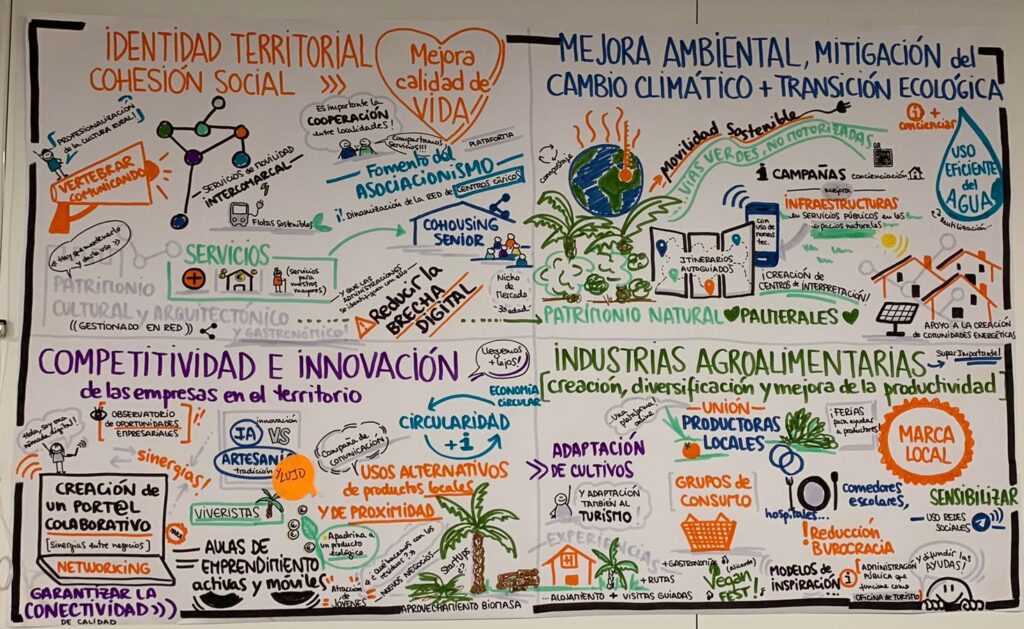 IDENTIDAD TERRITORIAL
COHESIÓN SOCIAL >>>
Mejora
calidad de
VIDA!
¡PROFESIONALIZACIÓN
DE LA CULTURA RURAL!
VERTEBRAR
COMUNICANDO
SERVICIOS DE MOVILIDAD
INTERCOMARCAL
Flotas Sostenibles
Es importante la
COOPERACIÓN
entre localidades!
Compartamos
SERVICIOS!!!
PLATAFORMA
Fomento del
ASOCIACIONISMO
¡Dinamización de la RED de CENTROS CÍVICOS
COHOUSING
SENIOR
SERVICIOS
(Servicios
para
nuestros
mayores)
Y QUE LAS
ADMINISTRACIONES
Reducir la
BRECHA
DIGITAL
Nicho
de
mercado
3ª edad
Hay que mantenerlo
y darle uso
PATRIMONIO
CULTURAL y ARQUITECTÓNICO
y GASTRONÓMICO!
((GESTIONADO EN RED))
MEJORA AMBIENTAL, MITIGACIÓN del
CAMBIO CLIMÁTICO + TRANSICIÓN ECOLÓGICA
compostaje
Movilidad Sostenible
VÍAS VERDES, NO MOTORIZADAS
i
+ concienciar
USO
EFICIENTE
del
AGUA
Reutilización
i CAMPAÑAS concienciación
mejora
INFRAESTRUCTURAS
en Servicios públicos en los
espacios naturales
con
uso de
nuevas
tec.
ITINERARIOS
AUTOGUIADOS
¡CREACIÓN DE
CENTROS DE INTERPRETACIÓN!
PATRIMONIO NATURAL
PALMERALES
APOYO A LA CREACIÓN
DE COMUNIDADES ENERGÉTICAS
COMPETITIVIDAD E INNOVACIÓN
de las empresas en el territorio
Lleguemos
+ lejos!
Hola, soy una
nómada digital!
OBSERVATORIO
DE OPORTUNIDADES
EMPRESARIALES
sinergias!
innovación
IA VS
ARTESANÍA
tradición
Y LUJO
Campaña de
COMUNICACIÓN
ECONOMÍA
CIRCULAR
CIRCULARIDAD
+ i
USOS ALTERNATIVOS
de productos locales
Y DE PROXIMIDAD
CREACIÓN de
un PORT@L
COLABORATIVO
[Sinergias entre negocios]
NETWORKING
VIVERISTAS
Apadrina a
un producto
ecológico
AULAS DE
EMPRENDIMIENTO
activas y móviles
¿qué hacemos con los
residuos??
NUEVOS NEGOCIOS
Startups
Atracción de
JÓVENES
APROVECHAMIENTO BIOMASA
GARANTIZAR LA
(CONECTIVIDAD)))
DE CALIDAD
INDUSTRIAS AGROALIMENTARIAS
Super Importante!
[creación, diversificación y mejora de la productividad]
ADAPTACIÓN
DE CULTIVOS
Y ADAPTACIÓN
TAMBIÉN AL
TURISMO
Una
online
UNIÓN
PRODUCTORAS
LOCALES
¡FERIAS
para ayudar
a productores!
MARCA
LOCAL
GRUPOS DE
CONSUMO
comedores
escolares,
hospitales...
SENSIBILIZAR
USO REDES
SOCIALES
!Reducción
BUROCRACIA
EXPERIENCIAS
+GASTRONOMÍA
+ RUTAS
...ALOJAMIENTO + VISITAS GUIADAS
(Alicante)
Vegan
FEST!
MODELOS DE
INSPIRACIÓN
i
ADMINISTRACIÓN
PÚBLICA que
funcione como
OFICINA DE TURISMO
y difundir las
AYUDAS!